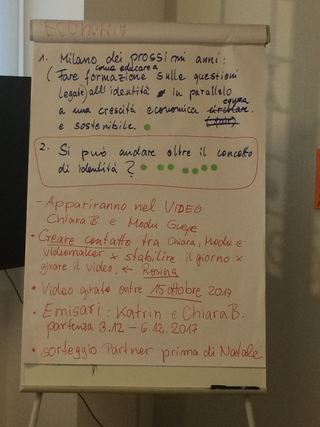 ECONOMIA
1. Milano dei prossimi anni:
come educare a
(Fare formazione sulle questioni
legate) all'identità in parallelo
a una crescita economica circolare
equa
e sostenibile.
2. Si può andare oltre il concetto
di identità?
- Appariranno nel VIDEO
Chiara B. e Modu Gueye
• Creare contatto tra Chiara, Modu e
videomaker x stabilire il giorno x
girare il video. ← Rosina
• Video girato entro 15 ottobre 2017
• Emisari: Katrin e Chiara B.
partenza 3.12 - 6.12.2017
• sorteggio Partner prima di Natale